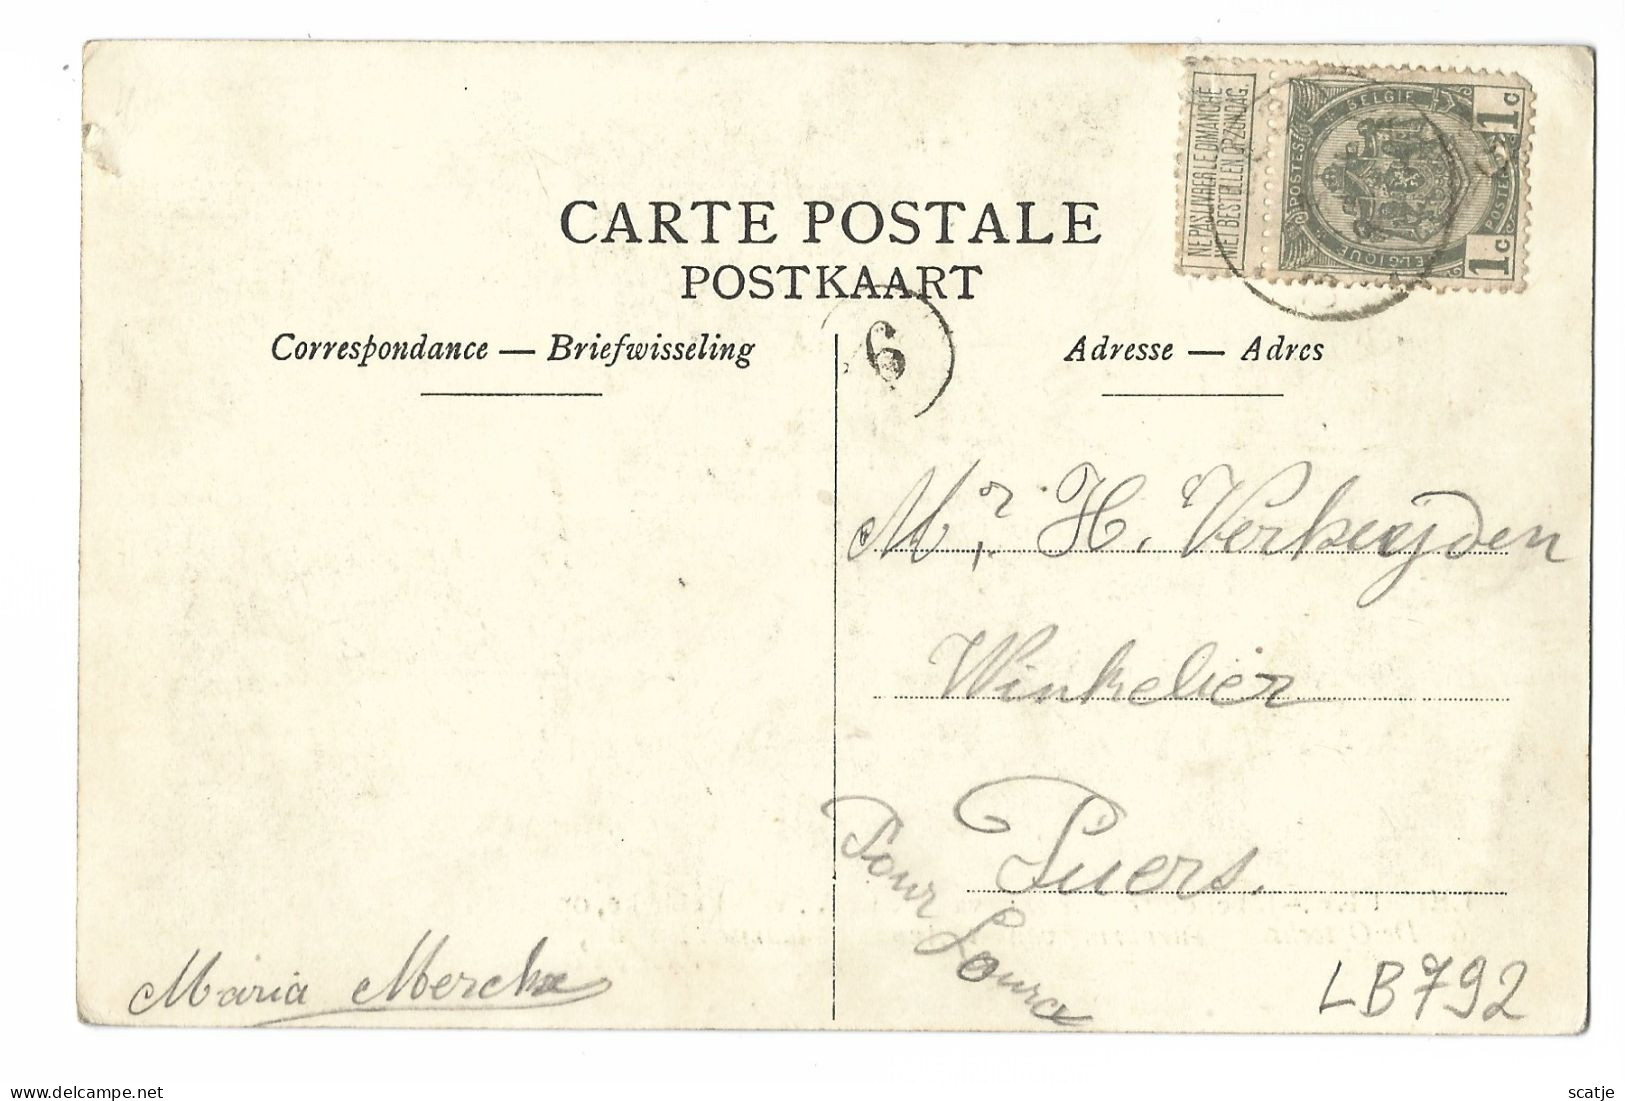 CARTE POSTALE
POSTKAART
Correspondance — Briefwisseling
Adresse — Adres
6
NE PAS LIVRER LE DIMANCHE
NIET BESTELLEN OP ZONDAG.
POSTES
BELGIE
BELGIQUE
POSTERIJEN
1c
1c
Mr. H. Verheyden
Winkelier
Puers.
Pour
Maria Merckx
LB792
www.delcampe.net
scatje